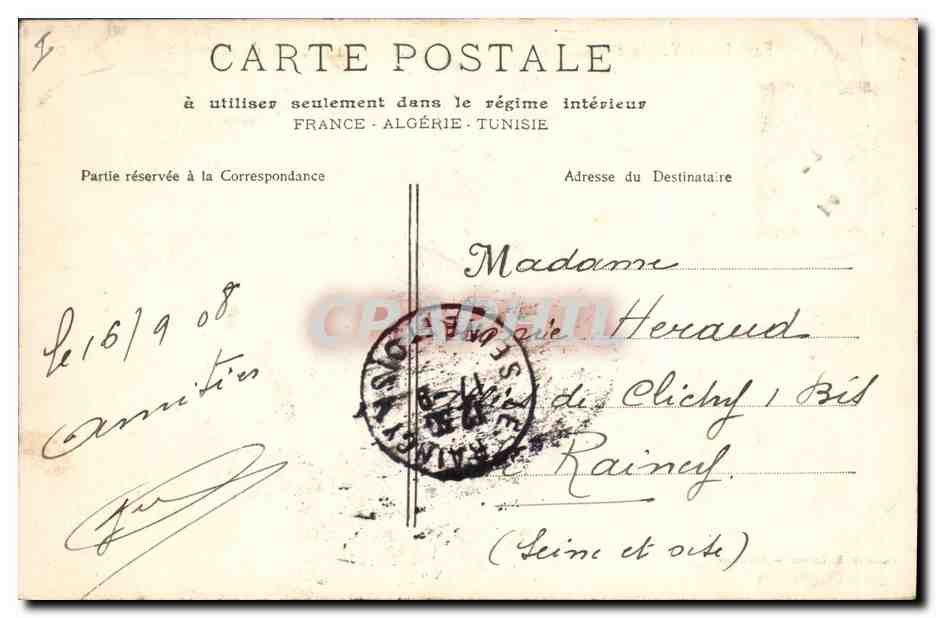 CARTE POSTALE
à utiliser seulement dans le régime intérieur
FRANCE - ALGÉRIE - TUNISIE
Partie réservée à la Correspondance
Adresse du Destinataire
le 16/9 08
amitiés
Madame
Heraud
de Clichy 1 Bis
Raincy
(Seine et oise)
CPAPHIL
LE RAINCY
SEINE